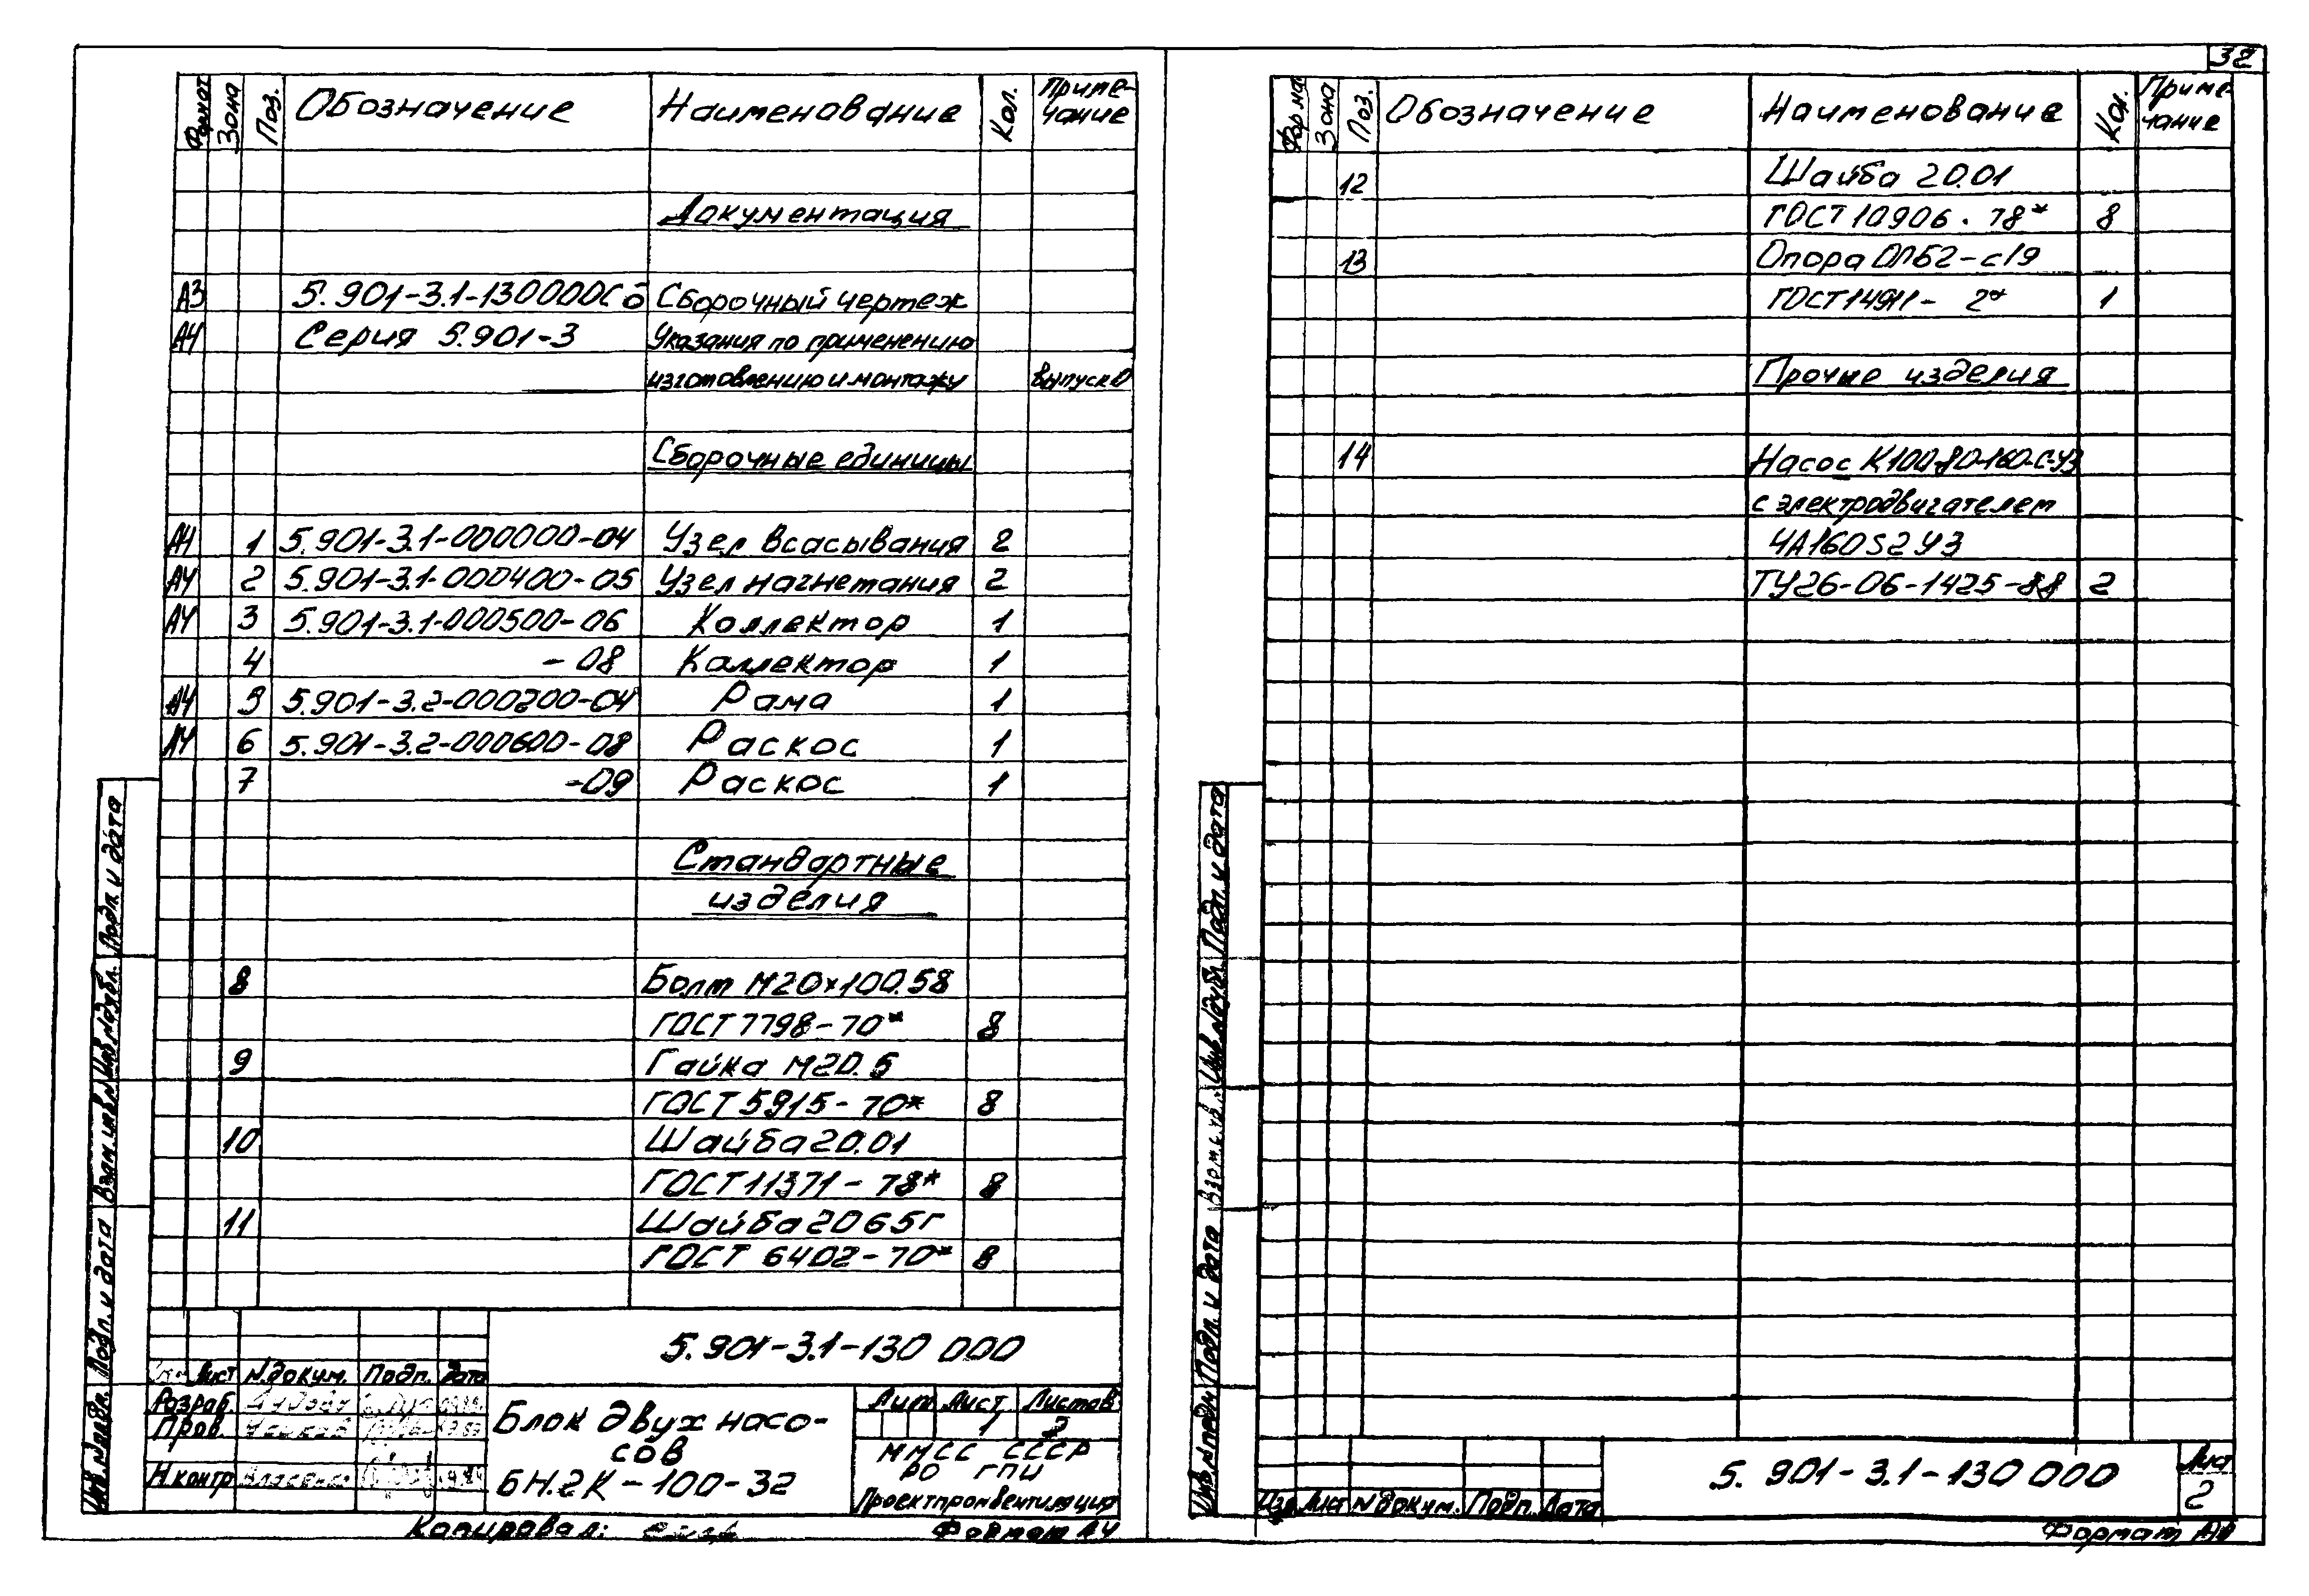 32
Формат Зона Поз. Обозначение Наименование Кол. Приме-
чание
Документация
А3 5.901-3.1-130000Сб Сборочный чертеж
А4 Серия 5.901-3 Указания по применению
изготовлению и монтажу Выпуск 0
Сборочные единицы
А4 1 5.901-3.1-000000-04 Узел всасывания 2
А4 2 5.901-3.1-000400-05 Узел нагнетания 2
А4 3 5.901-3.1-000500-06 Коллектор 1
4 -08 Каллектор 1
А4 5 5.901-3.2-000200-04 Рама 1
А4 6 5.901-3.2-000600-08 Раскос 1
7 -09 Раскос 1
Стандартные
изделия
8 Болт М20×100.58
ГОСТ 7798-70* 8
9 Гайка М20.5
ГОСТ 5915-70* 8
10 Шайба 20.01
ГОСТ 11371-78* 8
11 Шайба 20 65г
ГОСТ 6402-70* 8
5.901-3.1-130 000
Лист N.докум. Подп. Дата
Разраб.
Пров.
Н.контр
Блок двух насо-
сов
БН.2К-100-32
Лит Лист Листов
1 2
ММСС СССР
РО ГПИ
Проектпромвентиляция
Копировал:
Формат А4
Инв.Nподл. Подп. и дата Взам.инв.N Инв.Nдубл. Подп и дата
Форма Зона Поз. Обозначение Наименование Кол. Приме-
чание
12 Шайба 20.01
ГОСТ 10906.78* 8
13 Опора ОПБ2-с19
ГОСТ 14911- 2* 1
Прочие изделия
14 Насос К100-80-160-С-У3
с электродвигателем
4А160S2У3
ТУ26-06-1425-88 2
5.901-3.1-130 000
Лист
2
Изм Лист N докум. Подп. Дата
Формат
Инв.Nподл Подп. и дата Взам.инв.N Инв.Nдубл. Подп. и дата